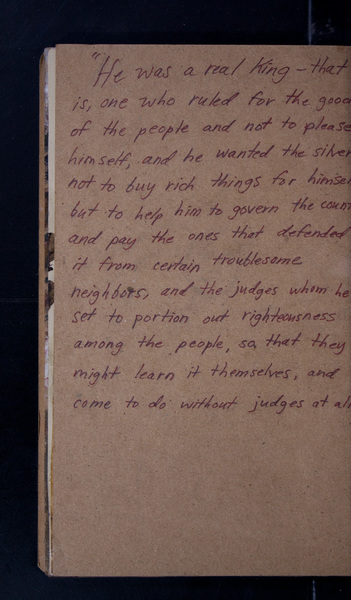 "He was a real King – that
is, one who ruled for the good
of the people and not to please
himself, and he wanted the silver
not to buy rich things for himsel
but to help him to govern the coun
and pay the ones that defended
it from certain troublesome
neighbors, and the judges whom he
set to portion out righteousness
among the people, so, that they
might learn it themselves, and
come to do without judges at all